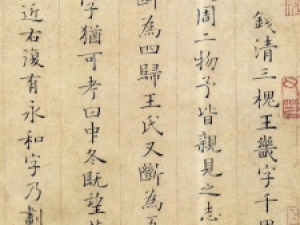 錢清三槐王畿字千里
周二物予皆親見之志
斷為四歸王氏又斷為五
字猶可考曰中冬既望
近右復有永和字乃劃